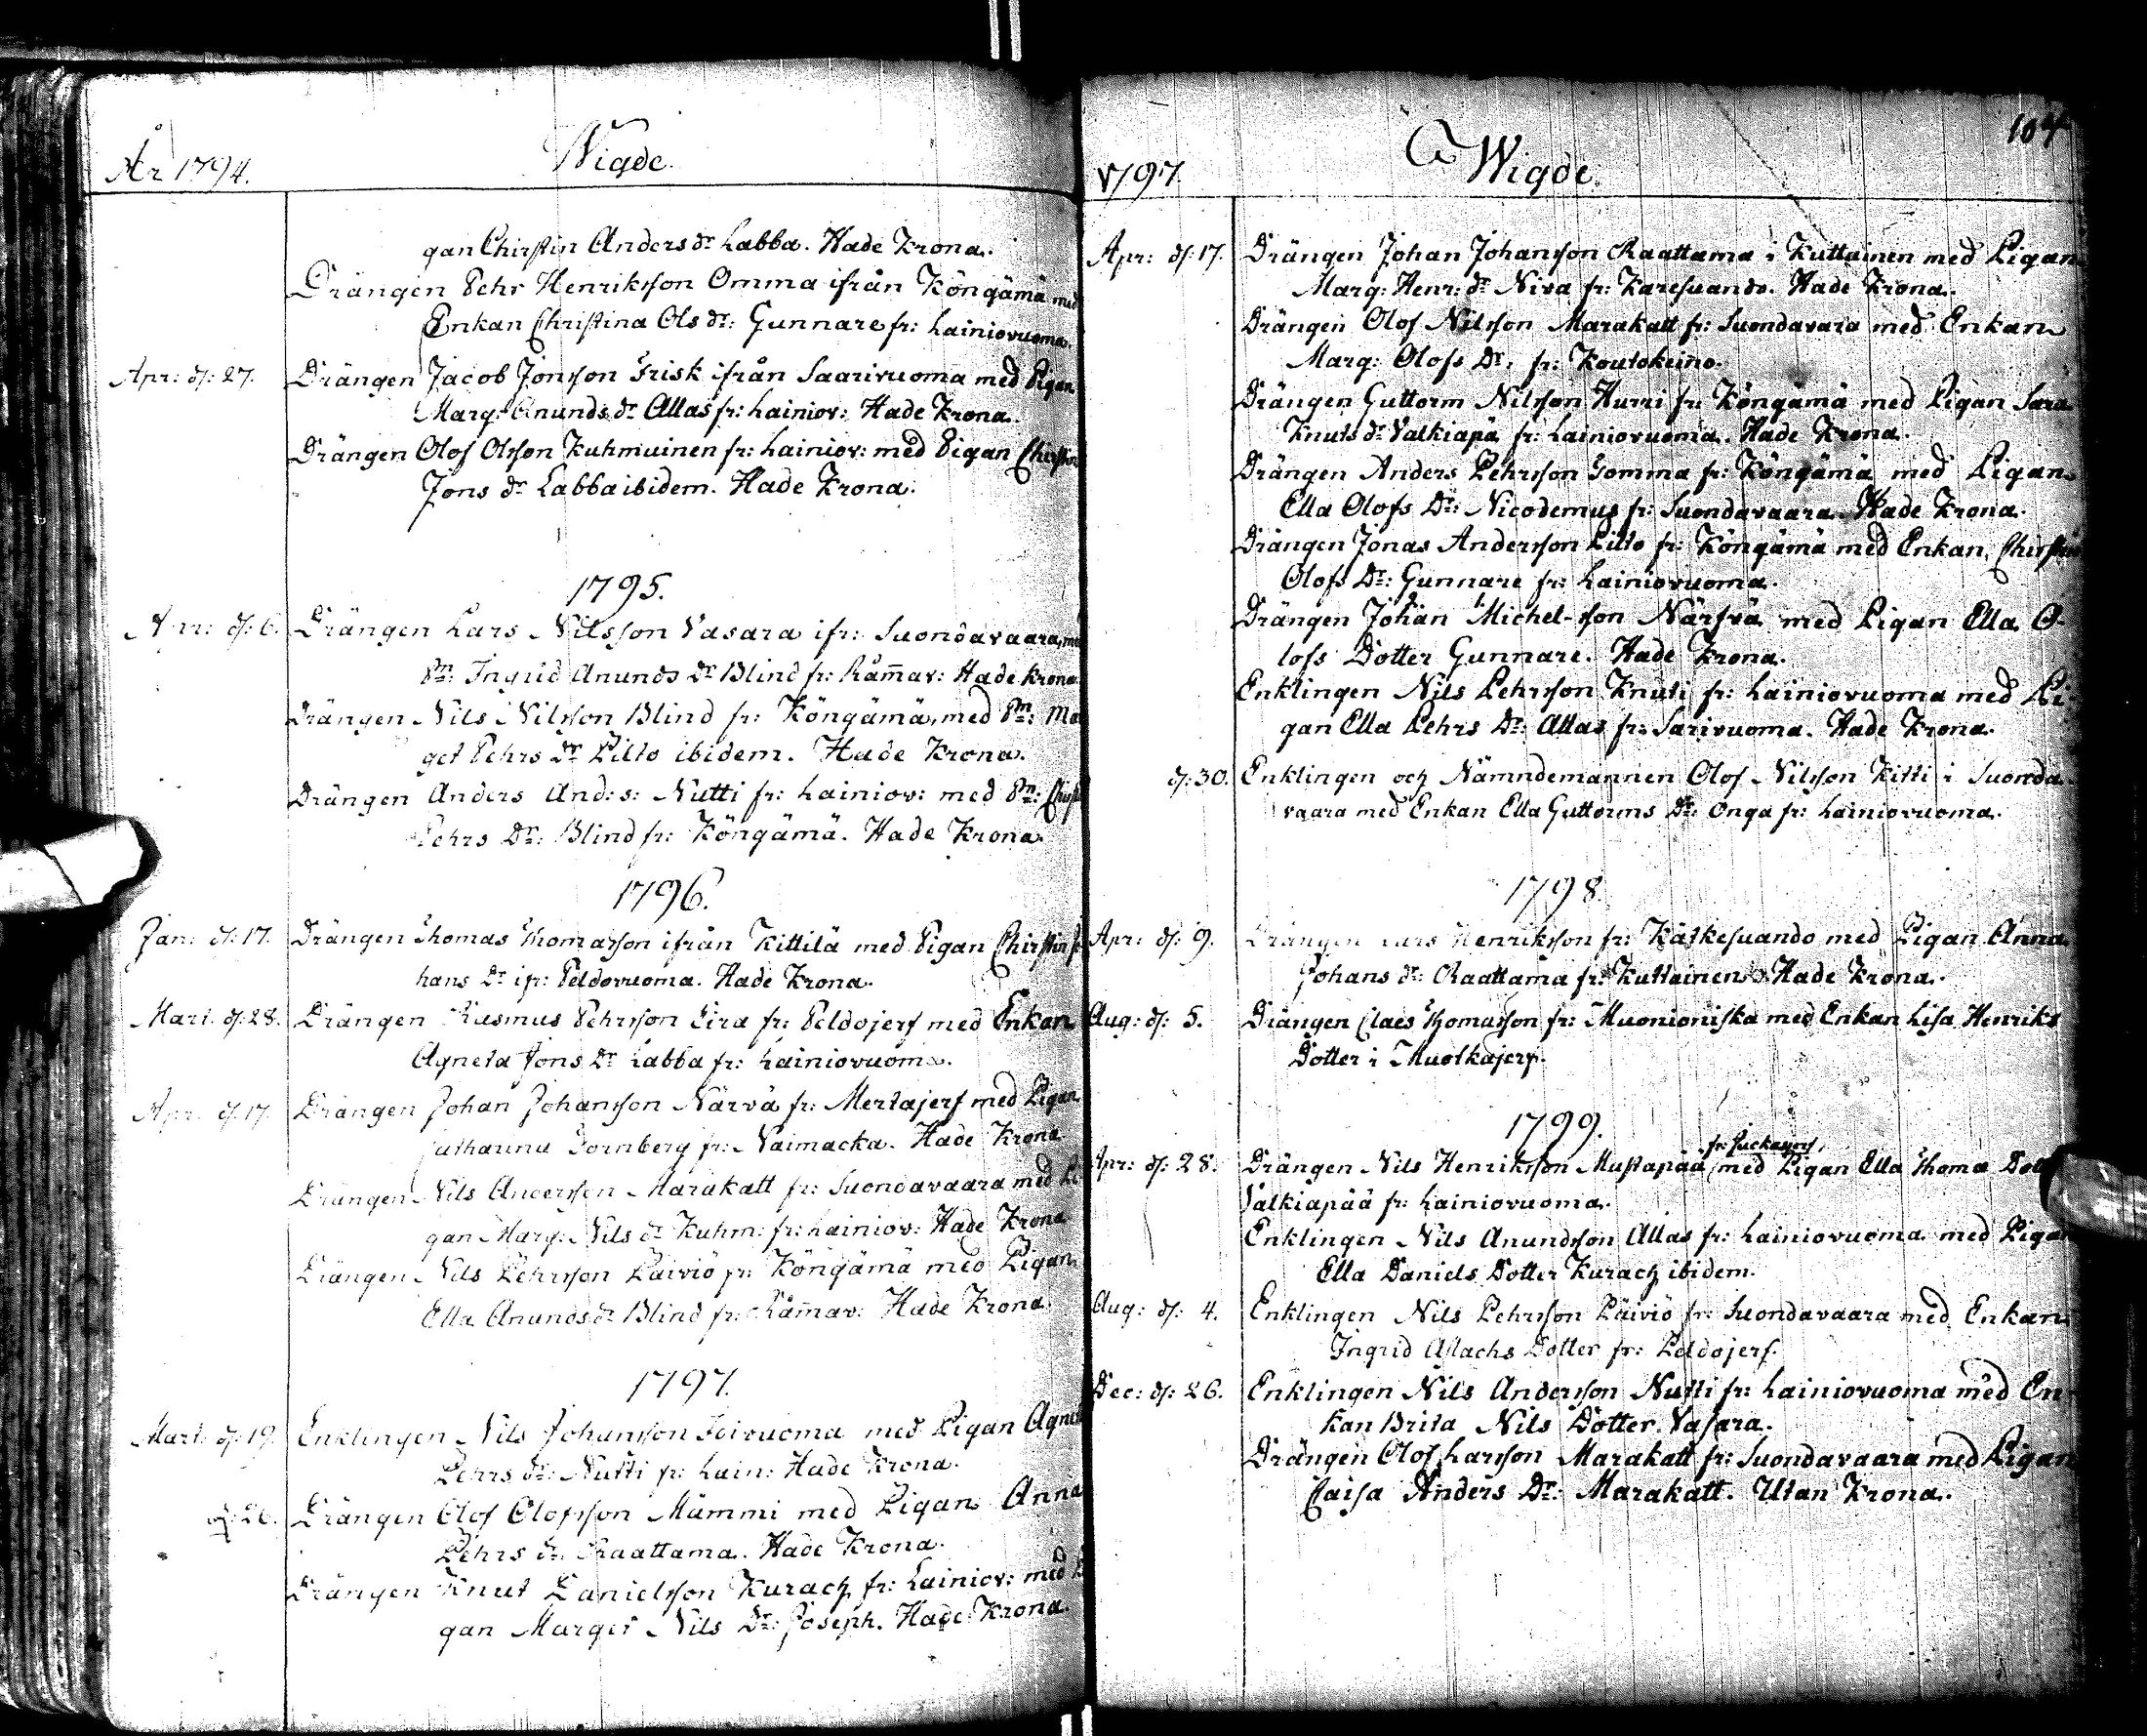 År 1794. Wigde.
gan Chirstin Anders dr Labba. Hade Krona.
Drängen Pehr Henriksson Omma ifrån Köngämä med
Enkan Christina Ols dr: Gunnare fr: Lainiovuoma.
Apr: d: 27. Drängen Jacob Jonsson Frisk ifrån Saarivuoma med Pigan
Marg: Anunds dr Allas fr: Lainiov: Hade Krona.
Drängen Olof Olsson Kuhmuinen fr: Lainiov: med Pigan Chirstin
Jons dr Labba ibidem. Hade Krona.
1795.
Apr: d: 6. Drängen Lars Nilsson Vasara ifr: Suondavaara, med
Pn: Ingrid Anunds Dr Blind fr: Råmav: Hade Krona
Drängen Nils Nilsson Blind fr: Köngämä, med Pn: Mar
get Pehrs Dr Pilto ibidem. Hade Krona.
Drängen Anders And: s: Nutti fr: Lainiov: med Pn: Chirst
Pehrs Dr: Blind fr: Köngämä. Hade Krona.
1796.
Jan: d: 17. Drängen Thomas Thomasson ifrån Kittilä med Pigan Chirstin Jo
hans Dr ifr: Peldovuoma. Hade Krona.
Mart. d: 28. Drängen Rasmus Pehrsson Eira fr: Peldojerf med Enkan
Agneta Jons Dr Labba fr: Lainiovuoma.
Apr. d. 17. Drängen Johan Johansson Närvä fr: Mertajerf med Pigan
Catharina Fornberg fr: Naimacka. Hade Krona
Drängen Nils Andersson Marakatt fr: Suondavaara med Pi
gan Marg: Nils dr Kuhm: fr: Lainiov: Hade Krona
Drängen Nils Pehrsson Päiviö fr: Köngämä med Pigan
Ella Anunds dr Blind fr: Råmav: Hade Krona
1797.
Mart: d: 19. Enklingen Nils Johansson Toivuoma med Pigan Agnet
Pehrs dr: Nutti fr: Lain: Hade Krona.
d: 26. Drängen Olof Olofsson Mämmi med Pigan Anna
Pehrs dr. Raattama. Hade Krona.
Drängen Knut Danielsson Kurach fr: Lainiov: med Pi
gan Margit Nils Dr: Joseph. Hade Krona.
104
1797. Wigde.
Apr: d: 17. Drängen Johan Johansson Raattama i Kuttainen med Pigan
Marg: Henr: dr Niva fr: Karesuando. Hade Krona.
Drängen Olof Nilsson Marakatt fr: Suondavara med Enkan
Marg: Olofs Dr, fr: Koutokeino.
Drängen Guttorm Nilsson Hurri fr: Köngämä med Pigan Sara
Knuts dr Valkiapä fr: Lainiovuoma. Hade Krona.
Drängen Anders Pehrsson Gomma fr: Köngämä med Pigan
Ella Olofs Dr: Nicodemus fr: Suondavaara. Hade Krona.
Drängen Jonas Andersson Pilto fr: Köngämä med Enkan, Chirstin
Olofs Dr: Gunnare fr: Lainiovuoma.
Drängen Johan Michel-sson Närfvä med Pigan Ella O-
lofs Dotter Gunnare. Hade Krona.
Enklingen Nils Pehrsson Knuti fr: Lainiovuoma med Pi-
gan Ella Pehrs Dr: Allas fr: Sarivuoma. Hade Krona.
d: 30. Enklingen och Nämndemannen Olof Nilsson Kitti i Suonda
vaara med Enkan Ella Guttorms Dr: Onga fr: Lainiovuoma.
1798.
Apr: d: 9. Drängen Lars Henriksson fr: Kätkesuando med Pigan Anna
Johans dr: Raattama fr: Kuttainen. Hade Krona.
Aug: d: 5. Drängen Claes Thomasson fr: Muonioniska med Enkan Lisa Henriks
Dotter i Muotkajerf.
1799.
fr: Suckajerf,
Apr: d: 28. Drängen Nils Henriksson Mustapää med Pigan Ella Thoma Dott
Valkiapää fr: Lainiovuoma.
Enklingen Nils Anundsson Allas fr: Lainiovuoma med Pigan
Ella Daniels Dotter Kurach ibidem.
Aug: d: 4. Enklingen Nils Pehrsson Päiviö fr: Suondavaara med Enkan
Ingrid Aslachs Dotter fr: Peldojerf.
Dec: d: 26. Enklingen Nils Andersson Nutti fr: Lainiovuoma med En
kan Brita Nils Dotter Vasara.
Drängen Olof Larsson Marakatt fr: Suondavaara med Pigan
Caisa Anders Dr: Marakatt. Utan Krona.